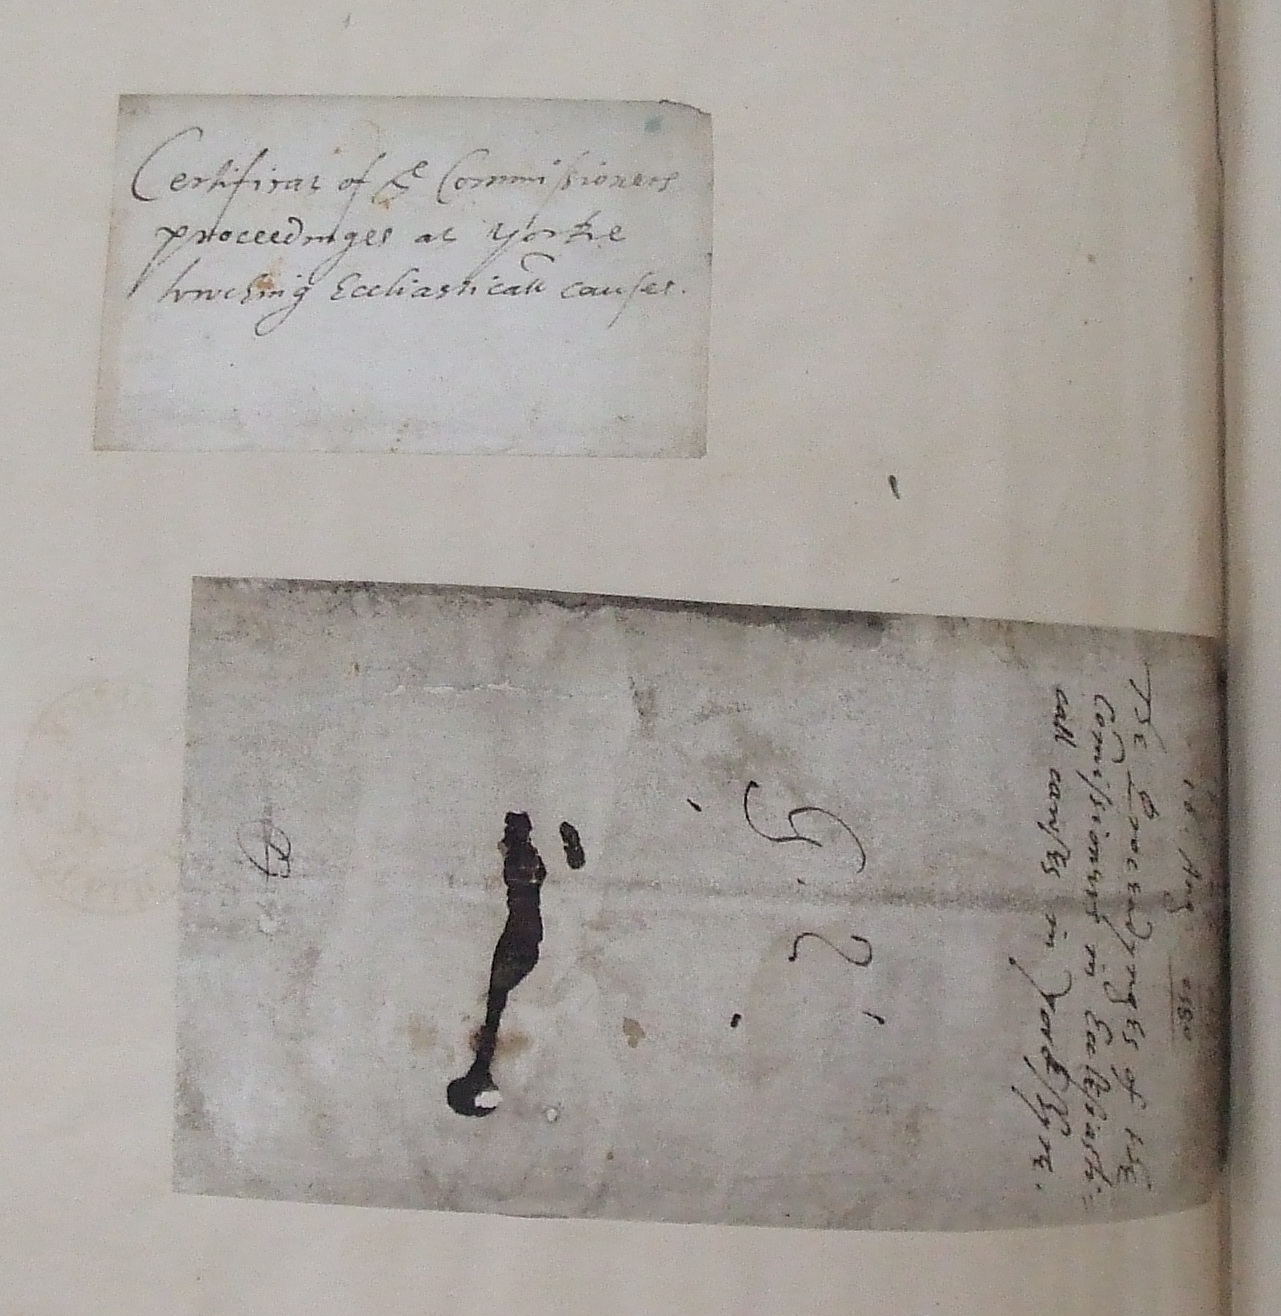 Certificat of ye Commissioners
proceedinges at Yorke
towching Eccliasticall causes.
10. Aug. 1580
The Proceadynges of the
Comissioners in Eccłesiasti=
call causes in Yorkshyre.
G. 2.